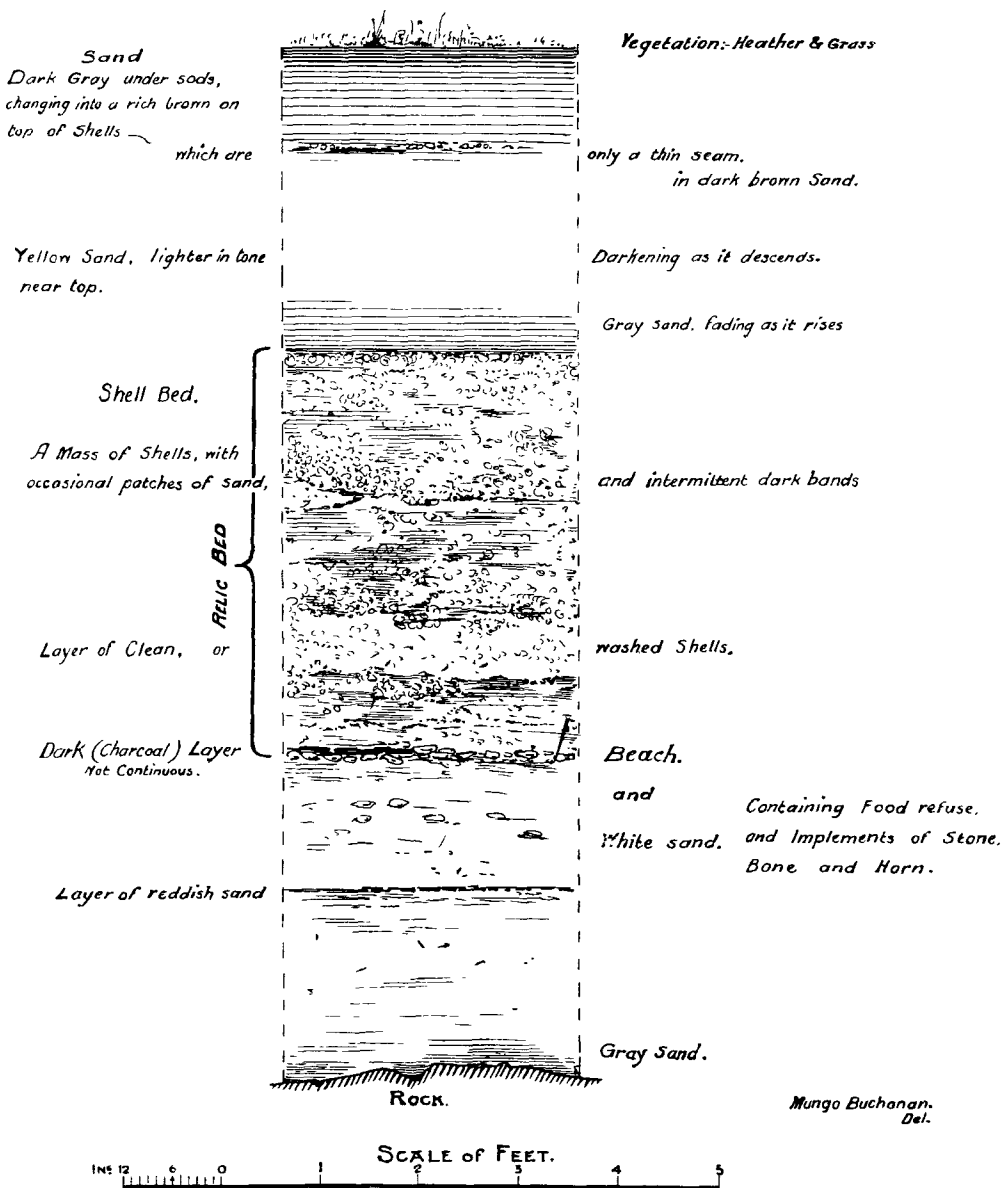 Vegetation:- Heather & Grass
Sand
Dark Gray under sods,
changing into a rich brown on
top of Shells
which are
only a thin seam.
in dark brown Sand.
Yellow Sand, lighter in tone
near top.
Darkening as it descends.
Gray sand. fading as it rises
Shell Bed.
A Mass of Shells, with
occasional patches of sand,
and intermittent dark bands
RELIC BED
Layer of Clean, or
washed Shells.
Dark (Charcoal) Layer
Not Continuous.
Beach.
and
White sand.
Containing Food refuse,
and Implements of Stone,
Bone and Horn.
Layer of reddish sand
Gray Sand.
ROCK.
Mungo Buchanan.
Del.
SCALE of FEET.
INS 12 6 0 1 2 3 4 5